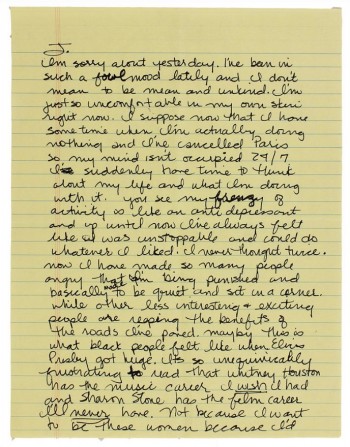 J.
I'm sorry about yesterday. I've been in
such a foul mood lately and I don't
mean to be mean and unkind. I'm
just so uncomfortable in my own skin
right now. I suppose now that I have
some time when I'm actually doing
nothing and I've cancelled Paris
so my mind isn't occupied 24/7
I suddenly have time to think
about my life and what I'm doing
with it. you see my frenzy of
activity is like an anti depressant
and up until now I've always felt
like I was unstoppable and could do
whatever I liked. I never thought twice.
now I have made so many people
angry that I'm being punished and
basically made to be quiet and sit in a corner.
while other less interesting & exciting
people are reaping the benefits of
the roads I've paved. maybe this is
what black people felt like when Elvis
Presley got huge. It's so unequivocably
frustrating to read that whitney Houston
has the music career I wish I had
and Sharon Stone has the film career
I'll never have. Not because I want
to be these women because I'd